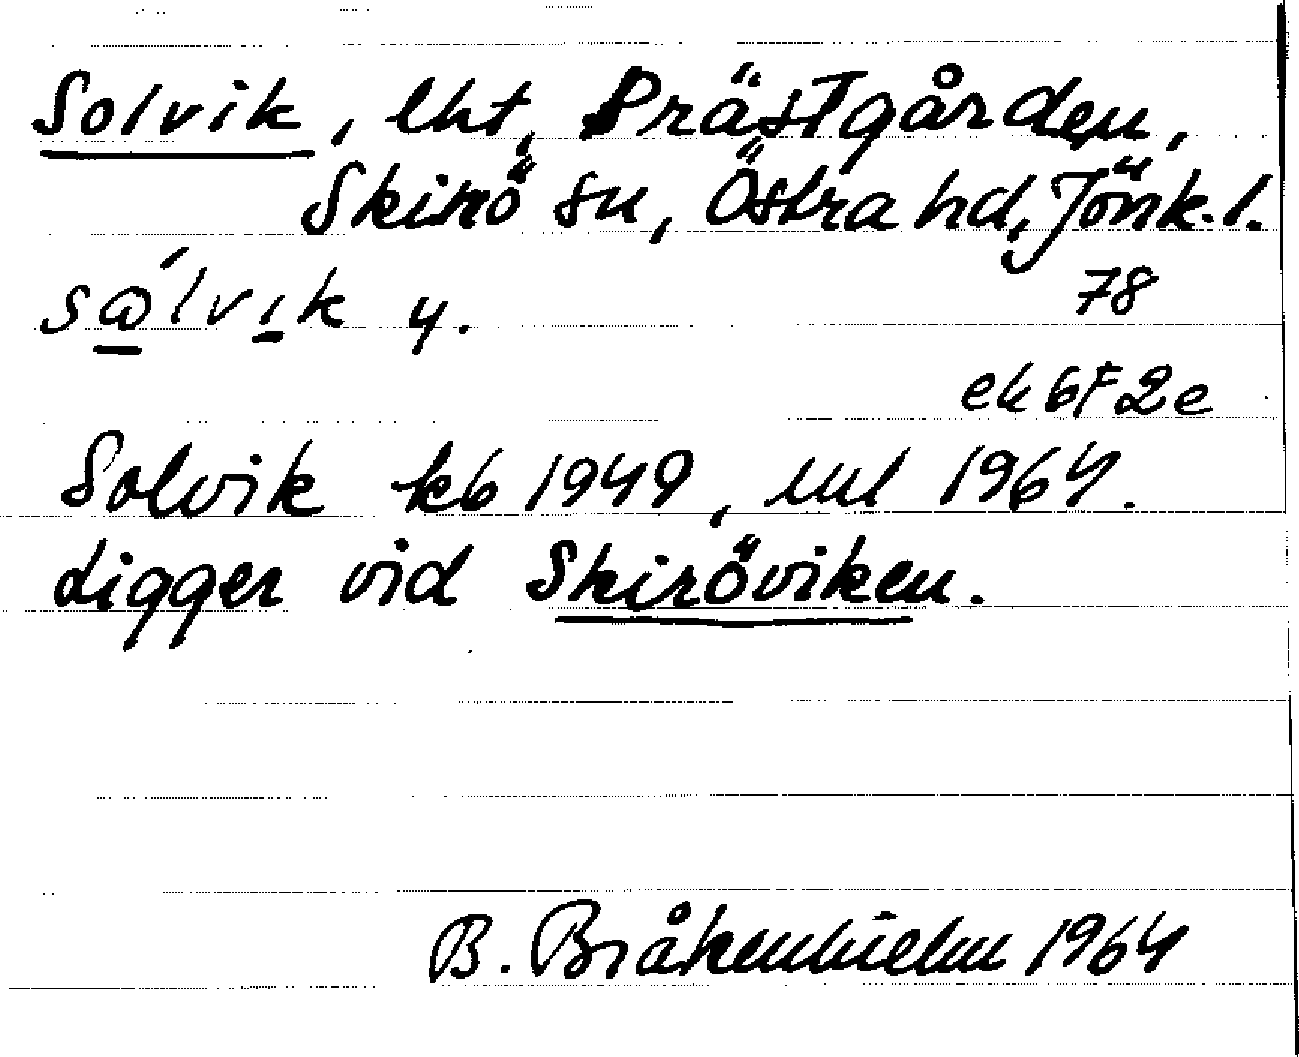 Solvik, lht, Prästgården,
Skirö sn, Östra hd, Jönk. l.
sώlvık y.
78
ek 6F2e
Solvik kb 1949, uul 1964.
Ligger vid Skiröviken.
B. Bråkenhielm 1964